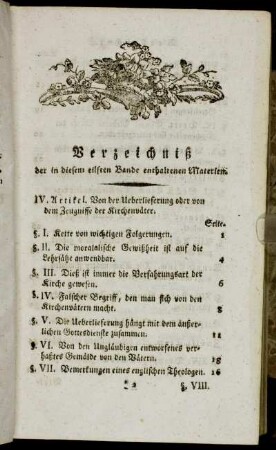 Verzeichniß
der in diesem eilften Bande enthaltenen Materien.
IV. Artikel. Von der Ueberlieferung oder von
dem Zeugnisse der Kirchenväter.
Seite.
§. I. Kette von wichtigen Folgerungen. 1
§. II. Die moralische Gewißheit ist auf die
Lehrsätze anwendbar. 4
§. III. Dieß ist immer die Verfahrungsart der
Kirche gewesen. 6
§. IV. Falscher Begriff, den man sich von den
Kirchenvätern macht. 8
§. V. Die Ueberlieferung hängt mit dem äußer-
lichen Gottesdienste zusammen. 11
§. VI. Von den Ungläubigen entworfenes ver-
haßtes Gemälde von den Vätern. 14
§. VII. Bemerkungen eines englischen Theologen. 16
* 2 §. VIII.